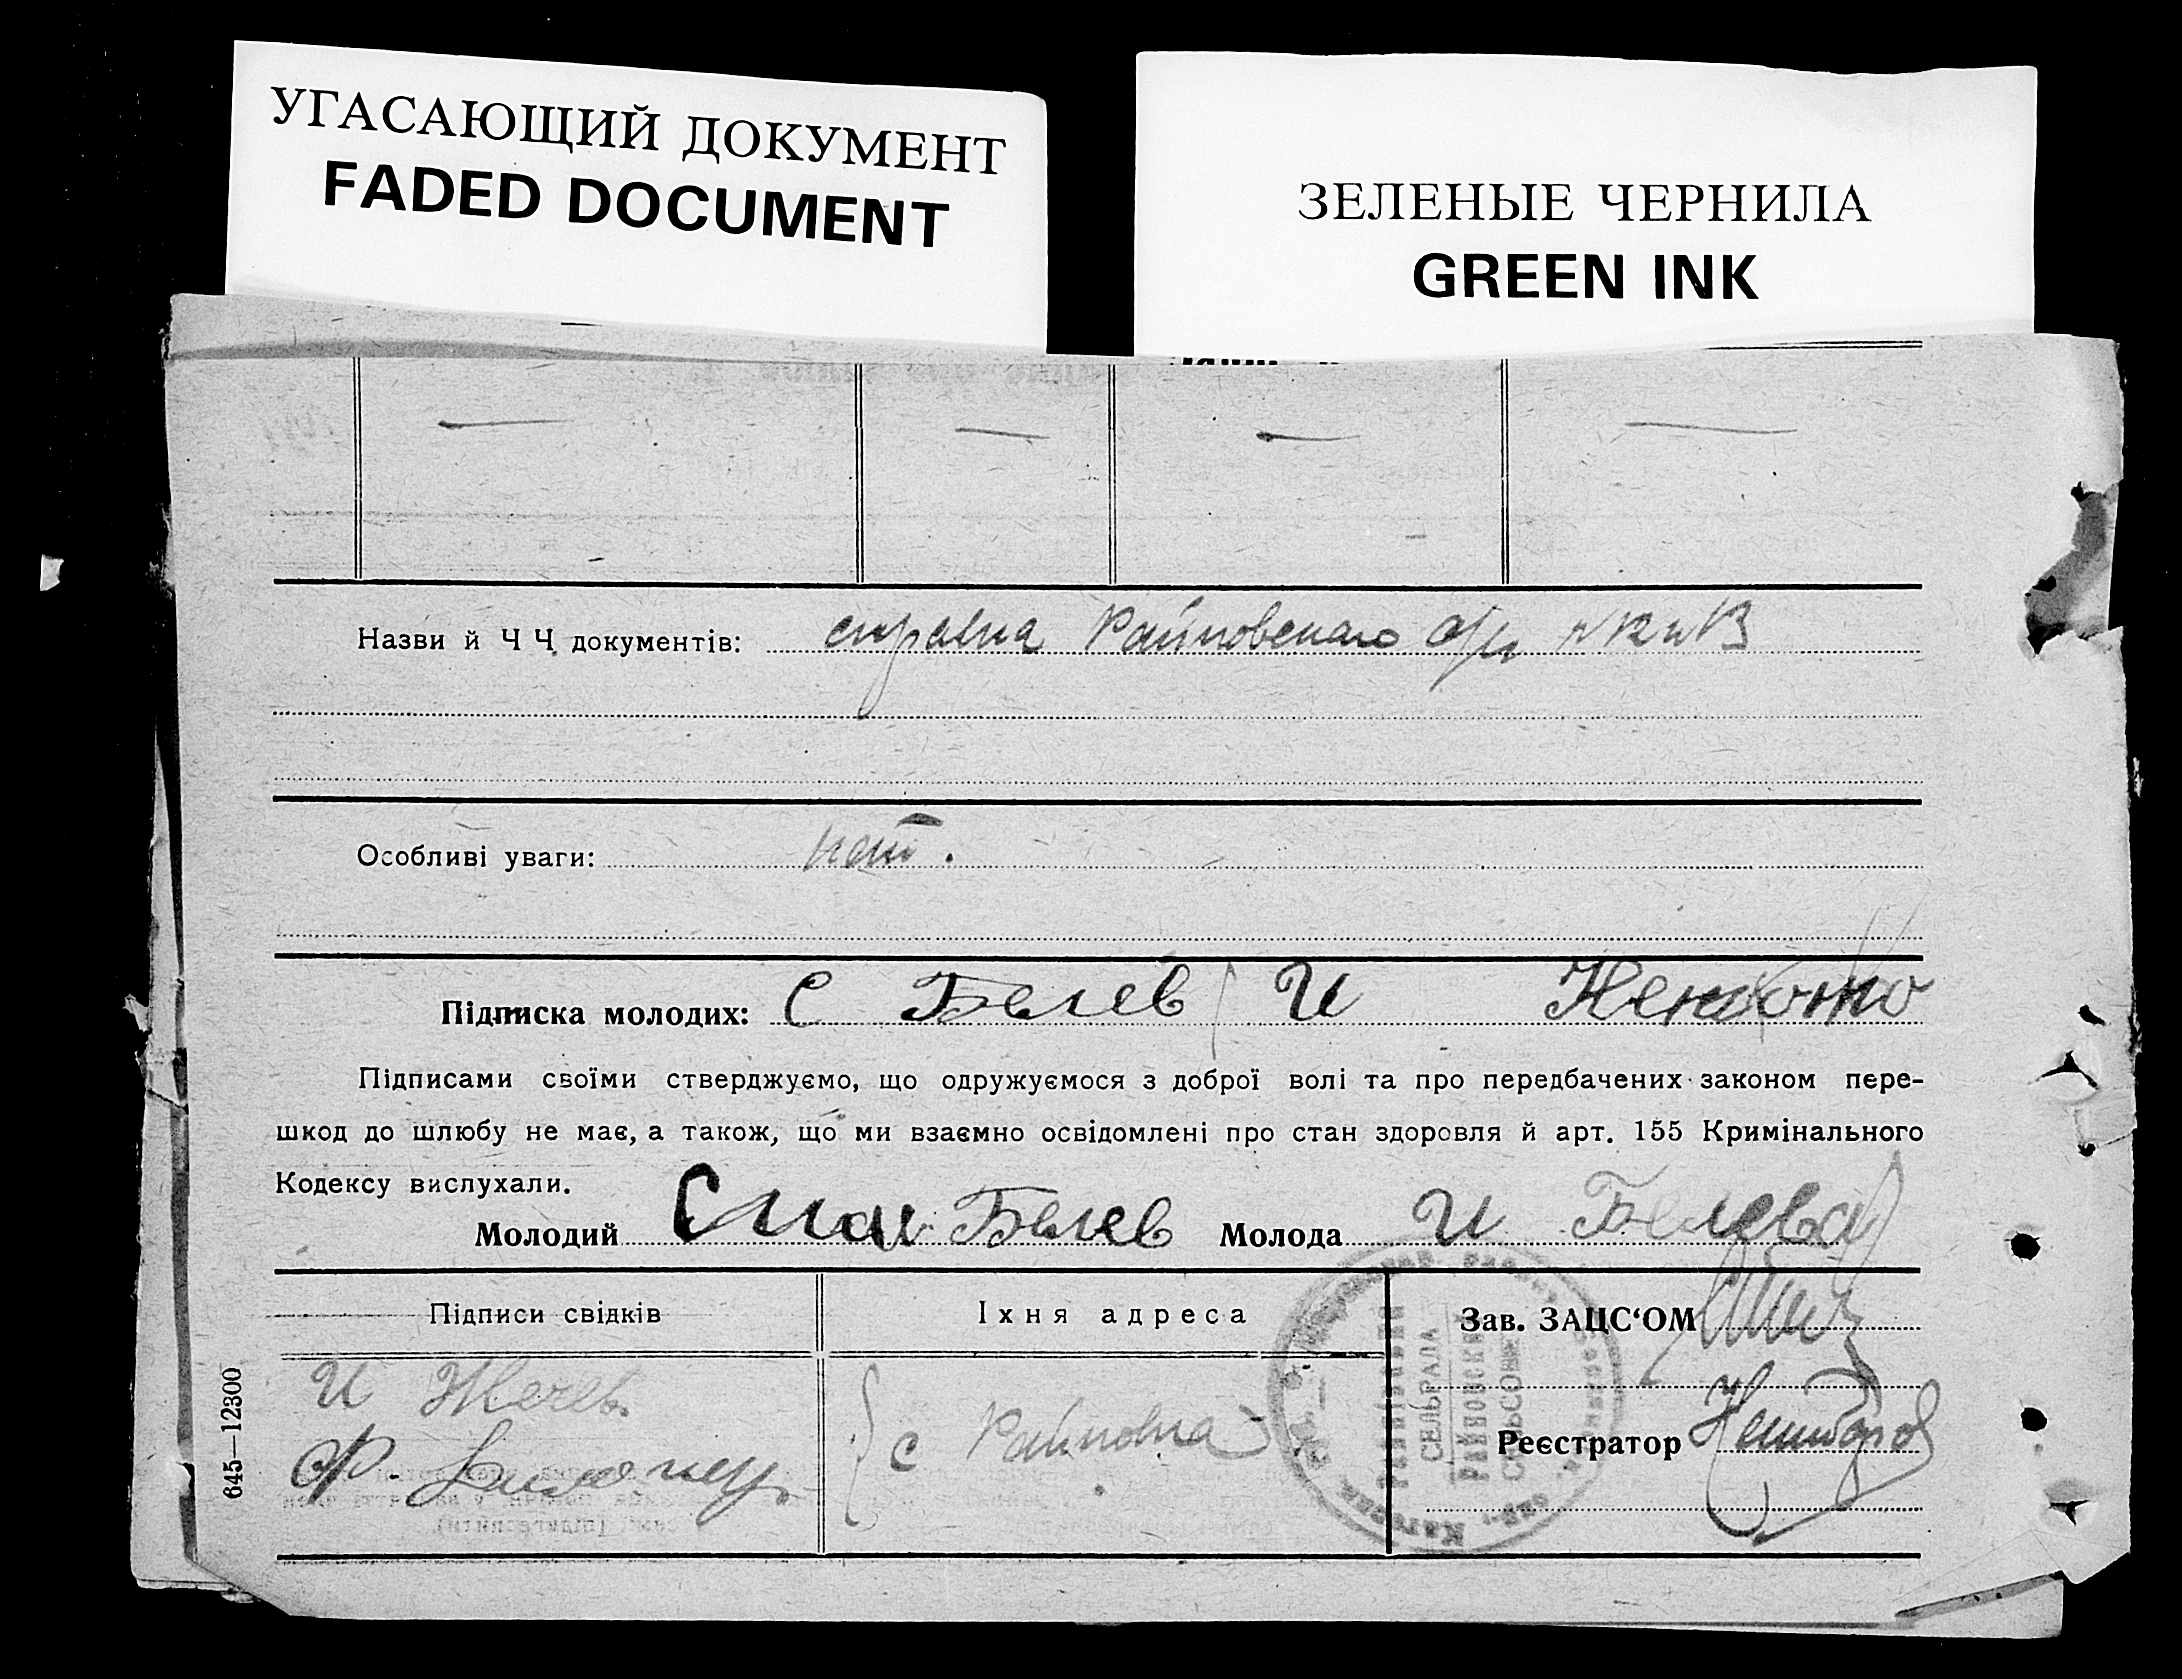 УГАСАЮЩИЙ ДОКУМЕНТ
FADED DOCUMENT
ЗЕЛЕНЫЕ ЧЕРНИЛА
GREEN INK
Назви й Ч Ч документів: справка Райновского
Особливі уваги: нет.
Підписка молодих: С Белев И
Підписами своїми стверджуємо, що одружуємося з доброї волі та про передбачених законом пере-
шкод до шлюбу не має, а також, що ми взаємно освідомлені про стан здоровля й арт. 155 Кримінального
Кодексу вислухали.
Молодий Белев Молода И Белева
Підписи свідків
Їхня адреса
Зав. ЗАЦС‘ОМ
И Жечев
Ф.
с Райновка
Реєстратор
СЕЛЬРАДА
645—12300